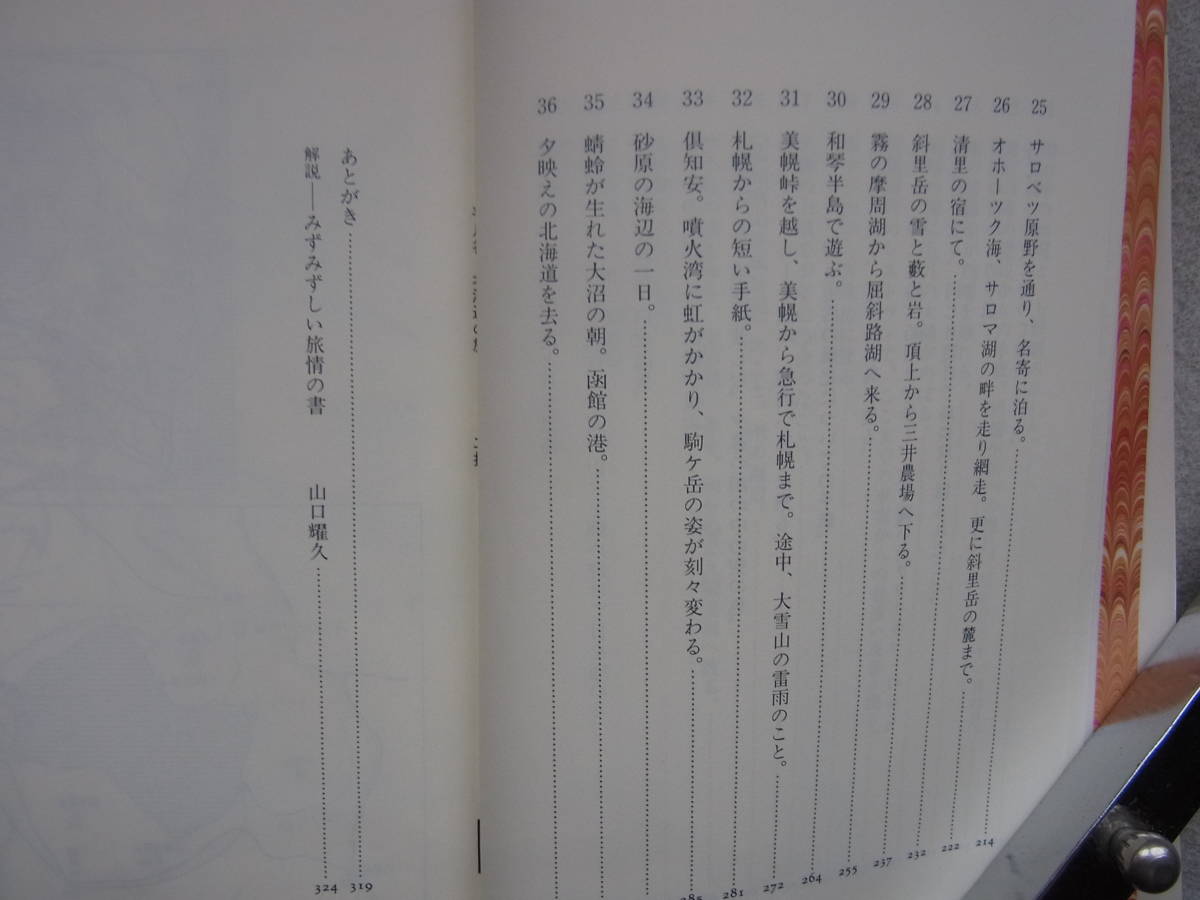 25 サロベツ原野を通り、名寄に泊る。……214
26 オホーツク海、サロマ湖の畔を走り網走。更に斜里岳の麓まで。……222
27 清里の宿にて。……232
28 斜里岳の雪と藪と岩。頂上から三井農場へ下る。……237
29 霧の摩周湖から屈斜路湖へ来る。……255
30 和琴半島で遊ぶ。……264
31 美幌峠を越し、美幌から急行で札幌まで。途中、大雪山の雷雨のこと。……272
32 札幌からの短い手紙。……281
33 倶知安。噴火湾に虹がかかり、駒ケ岳の姿が刻々変わる。……285
34 砂原の海辺の一日。……
35 蜻蛉が生れた大沼の朝。函館の港。……
36 夕映えの北海道を去る。……
あとがき……319
解説――みずみずしい旅情の書 山口耀久……324